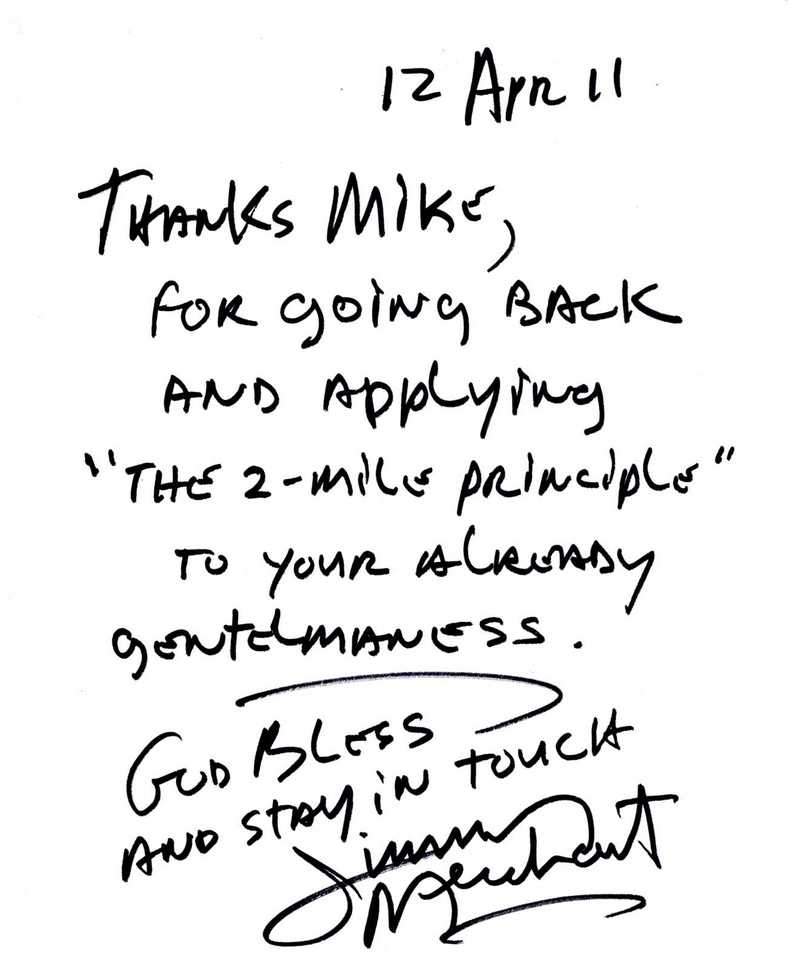 12 Apr 11
THANKS MIKE,
FOR GOING BACK
AND APPlYING
"THE 2-MILE PRINCIPLE"
TO YOUR AlREADY
GENTELMANESS.
GOD BLESS
AND STAY IN TOUCH
Jimmy
Merchant